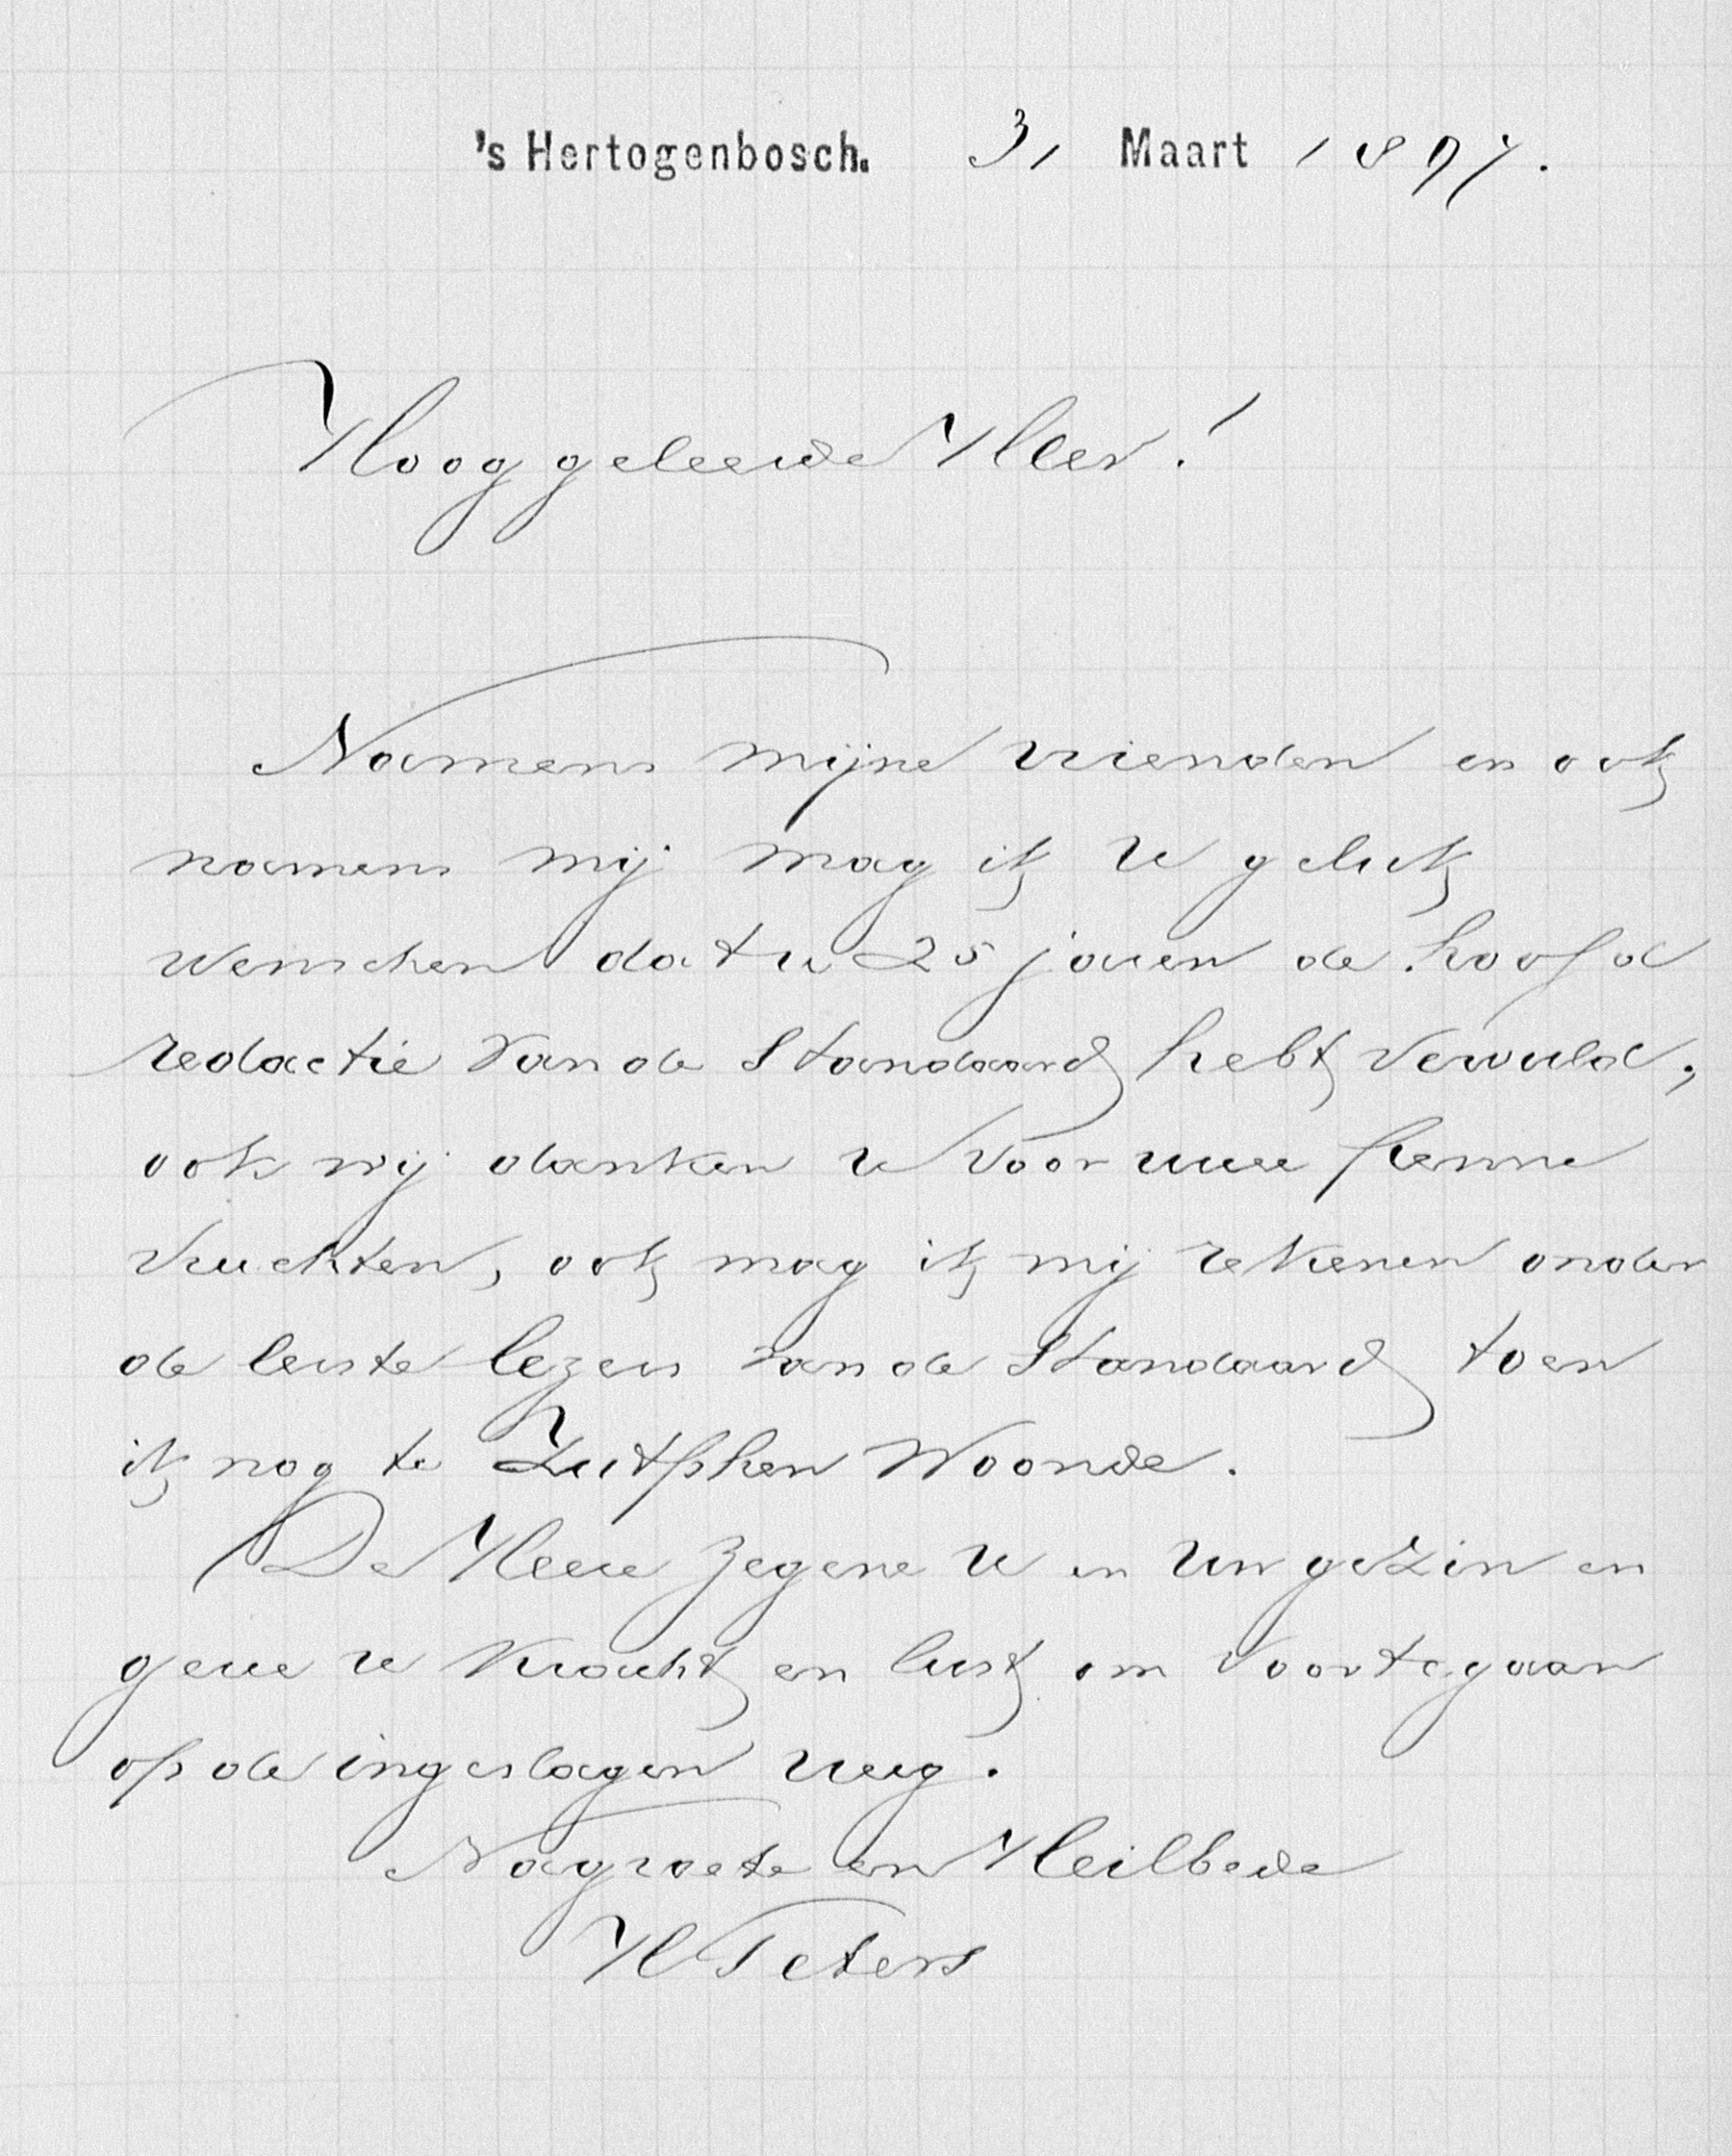 's Hertogenbosch. 31 Maart 1897.
Hooggeleerde Heer!
Namens mijne vrienden en ook
namens mij mag ik U geluk
wenschen dat u 25 jaren de hoofd
redactie van de Standaard hebt vervuld,
ook wij danken U voor uwe ferme
vruchten, ook mag ik mij rekenen onder
de eerste lezers van de Standaard toen
ik nog te Zutphen Woonde.
De Heere zegene U en Uw gezin en
geve U Kracht en lust om voortegaan
op de ingeslagen weg.
Nagroete en Heilbede
H Peters